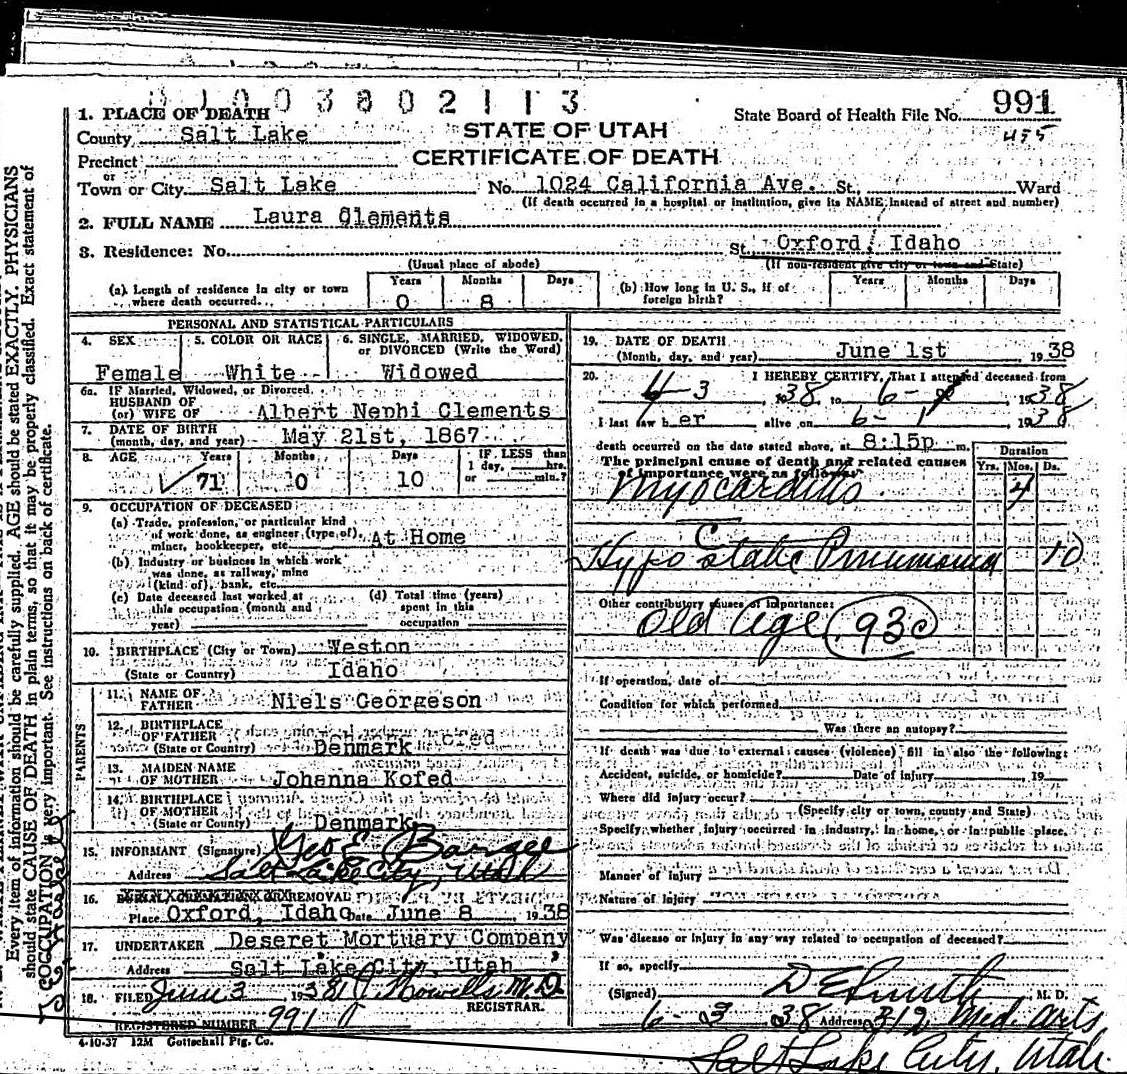 1003802113
1. PLACE OF DEATH
State Board of Health File No. 991
County Salt Lake
STATE OF UTAH
485
Precinct
CERTIFICATE OF DEATH
or
Town or City Salt Lake No. 1024 California Ave. St., Ward
(If death occurred in a hospital or institution, give its NAME instead of street and number)
2. FULL NAME Laura Clements
3. Residence: No. St. Oxford, Idaho
(Usual place of abode) (If non-resident give city or town and State)
(a) Length of residence in city or town where death occurred... Years 0 Months 8 Days
(b) How long in U. S., if of foreign birth? Years Months Days
PERSONAL AND STATISTICAL PARTICULARS
4. SEX Female
5. COLOR OR RACE White
6. SINGLE, MARRIED, WIDOWED, or DIVORCED (Write the Word) Widowed
6a. IF Married, Widowed, or Divorced.
HUSBAND OF
(or) WIFE OF Albert Nephi Clements
7. DATE OF BIRTH
(month, day, and year) May 21st, 1867
8. AGE Years 71 Months 0 Days 10 IF LESS than 1 day, hrs. or min.?
9. OCCUPATION OF DECEASED
(a) Trade, profession, or particular kind
of work done, as engineer (type of),
miner, bookkeeper, etc. At Home
(b) Industry or business in which work
was done, as railway, mine
(kind of), bank, etc.
(c) Date deceased last worked at this occupation (month and year)
(d) Total time (years) spent in this occupation
10. BIRTHPLACE (City or Town) Weston
(State or Country) Idaho
PARENTS
11. NAME OF FATHER Niels Georgeson
12. BIRTHPLACE OF FATHER
(State or Country) Denmark
13. MAIDEN NAME OF MOTHER Johanna Kofed
14. BIRTHPLACE OF MOTHER
(State or Country) Denmark
15. INFORMANT (Signature) Geo E
Address Salt Lake City, Utah
16. REMOVAL
Place Oxford, Idaho Date June 8, 1938
17. UNDERTAKER Deseret Mortuary Company
Address Salt Lake City, Utah
18. FILED June 3 1938 Howells M.D.
REGISTRAR.
REGISTERED NUMBER 991
4-10-37 12M Gottschall Ptg. Co.
19. DATE OF DEATH
(Month, day, and year) June 1st, 1938
20. I HEREBY CERTIFY, That I attended deceased from
4 3, 1938, to 6-, 1938
I last saw her alive on 6-1, 1938
death occurred on the date stated above, at 8:15p m.
The principal cause of death and related causes
of importance were as follows:
Duration
Yrs. Mos. Ds.
Myocarditis 4
C
Hypostatic Pneumonia 10
Other contributory causes of importance:
Old Age 93c
If operation, date of
Condition for which performed
Was there an autopsy?
If death was due to external causes (violence) fill in also the following:
Accident, suicide, or homicide? Date of injury, 19
Where did injury occur?
(Specify city or town, county and State)
Specify whether injury occurred in industry, in home, or in public place.
Manner of injury
Nature of injury
Was disease or injury in any way related to occupation of deceased?
If so, specify
(Signed) D E Smith, M. D.
6-3 38 Address 312 Med. Arts
Salt Lake City, Utah.
Every item of information should be carefully supplied. AGE should be stated EXACTLY. PHYSICIANS
should state CAUSE OF DEATH in plain terms, so that it may be properly classified. Exact statement of
OCCUPATION is very important. See instructions on back of certificate.